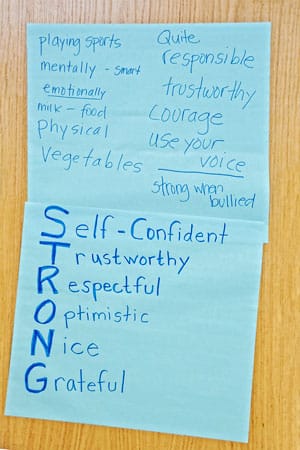 playing sports
mentally - smart
emotionally
milk - food
Physical
Vegetables
Quite
responsible
trustworthy
Courage
use your
voice
strong when
bullied
Self-Confident
Trustworthy
Respectful
Optimistic
Nice
Grateful